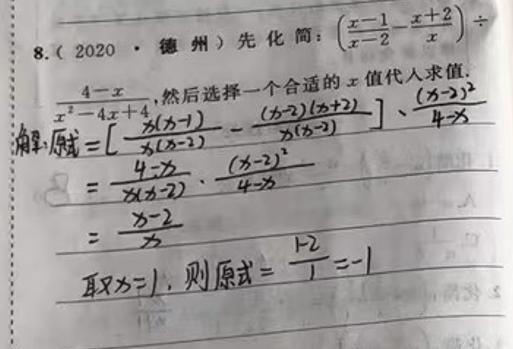 8.(2020·德州)先化简:(\frac{x-1}{x-2}-\frac{x+2}{x})÷
\frac{4-x}{x^2-4x+4},然后选择一个合适的x值代入求值.
解:原式=[\frac{x(x-1)}{x(x-2)}-\frac{(x-2)(x+2)}{x(x-2)}]·\frac{(x-2)^2}{4-x}
=\frac{4-x}{x(x-2)}·\frac{(x-2)^2}{4-x}
=\frac{x-2}{x}
取x=1,则原式=\frac{1-2}{1}=-1